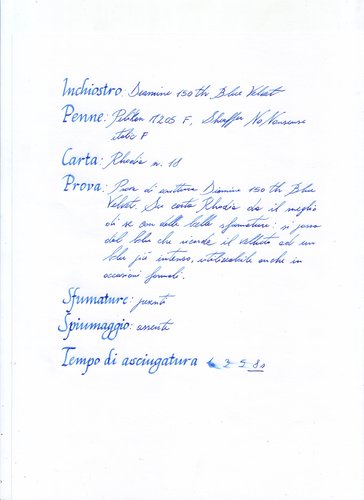 Inchiostro: Diamine 150th Blue Velvet
Penne: Pelikan M205 F, Sheaffer No Nonsense
italic F
Carta: Rhodia n. 18
Prova: Prova di scrittura Diamine 150th Blue
Velvet. Su carta Rhodia da il meglio
di se con delle belle sfumature: si passa
dal blu che ricorda il velluto ad un
blu più intenso, utilizzabile anche in
occasioni formali.
Sfumature: presenti
Spiumaggio: assente
Tempo di asciugatura 2 5 8s